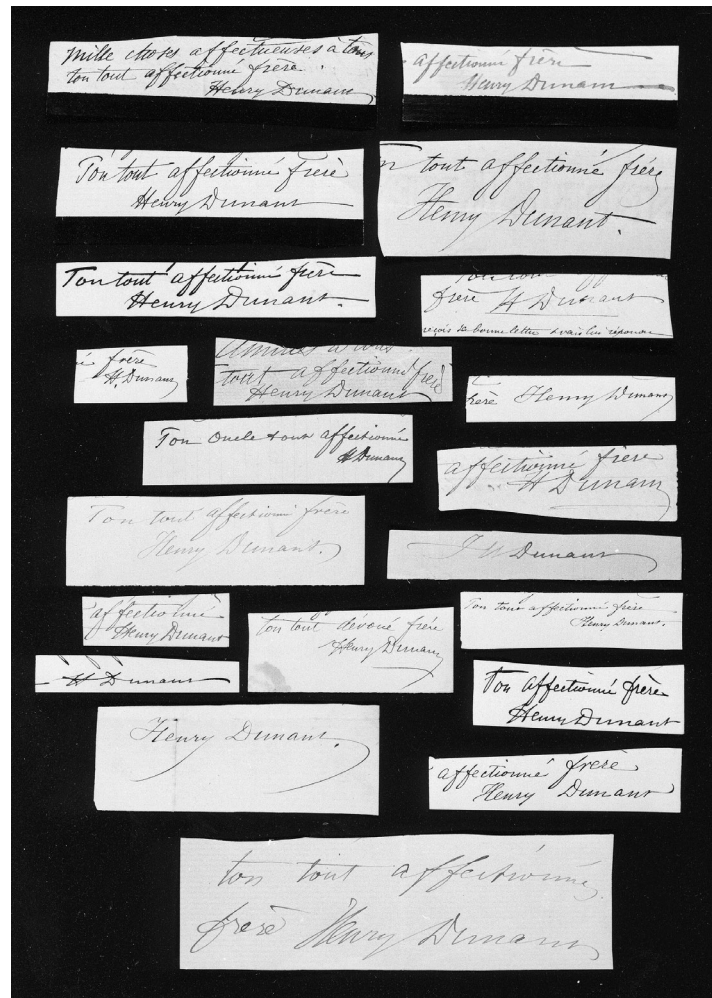 Mille choses affectueuses à tous
ton tout affectionné frère.
Henry Dunant
affectionné frère
Henry Dunant
Ton tout affectionné frère
Henry Dunant
n tout affectionné frère
Henry Dunant.
Ton tout affectionné frère
Henry Dunant.
frère H Dunant
reçois ta bonne lettre & vais lui répondre
frère
H. Dunant
tout affectionné frère
Henry Dunant
frère Henry Dunant
Ton Oncle tout affectionné
H Dunant
affectionné frère
H Dunant
Ton tout affectionné frère
Henry Dunant.
J H Dunant
affectionné
Henry Dunant
ton tout dévoué frère
Henry Dunant
Ton tout affectionné frère
Henry Dunant.
H Dunant
Ton affectionné frère
Henry Dunant
Henry Dunant.
affectionné frère
Henry Dunant
ton tout affectionné
frère Henry Dunant